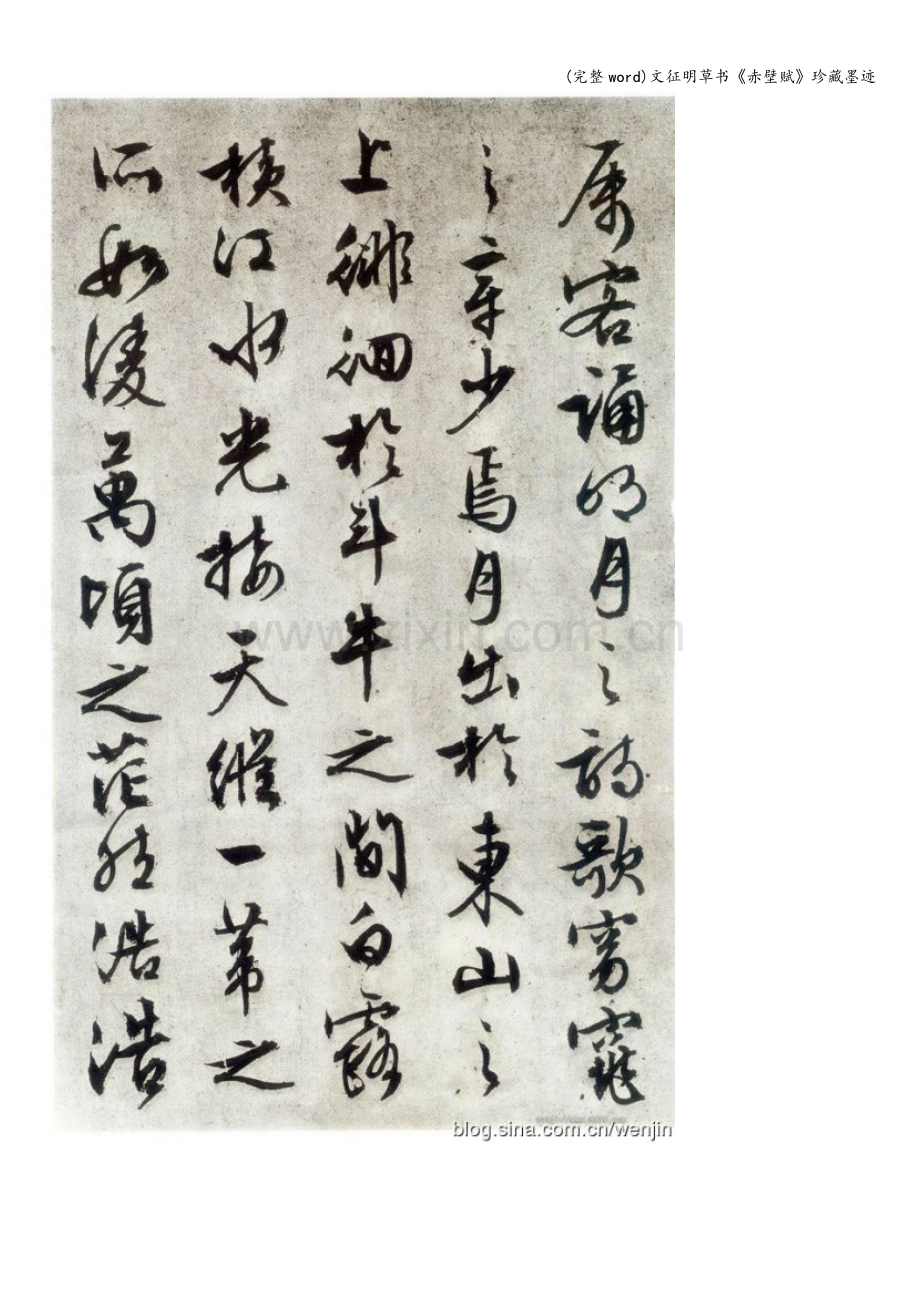 (完整word)文征明草书《赤壁赋》珍藏墨迹
属客诵明月之詩歌窈窕
之章少焉月出於東山之
上徘徊於斗牛之間白露
橫江水光接天縱一葦之
所如凌萬頃之茫然浩浩
www.zixin.com.cn
blog.sina.com.cn/wenjin